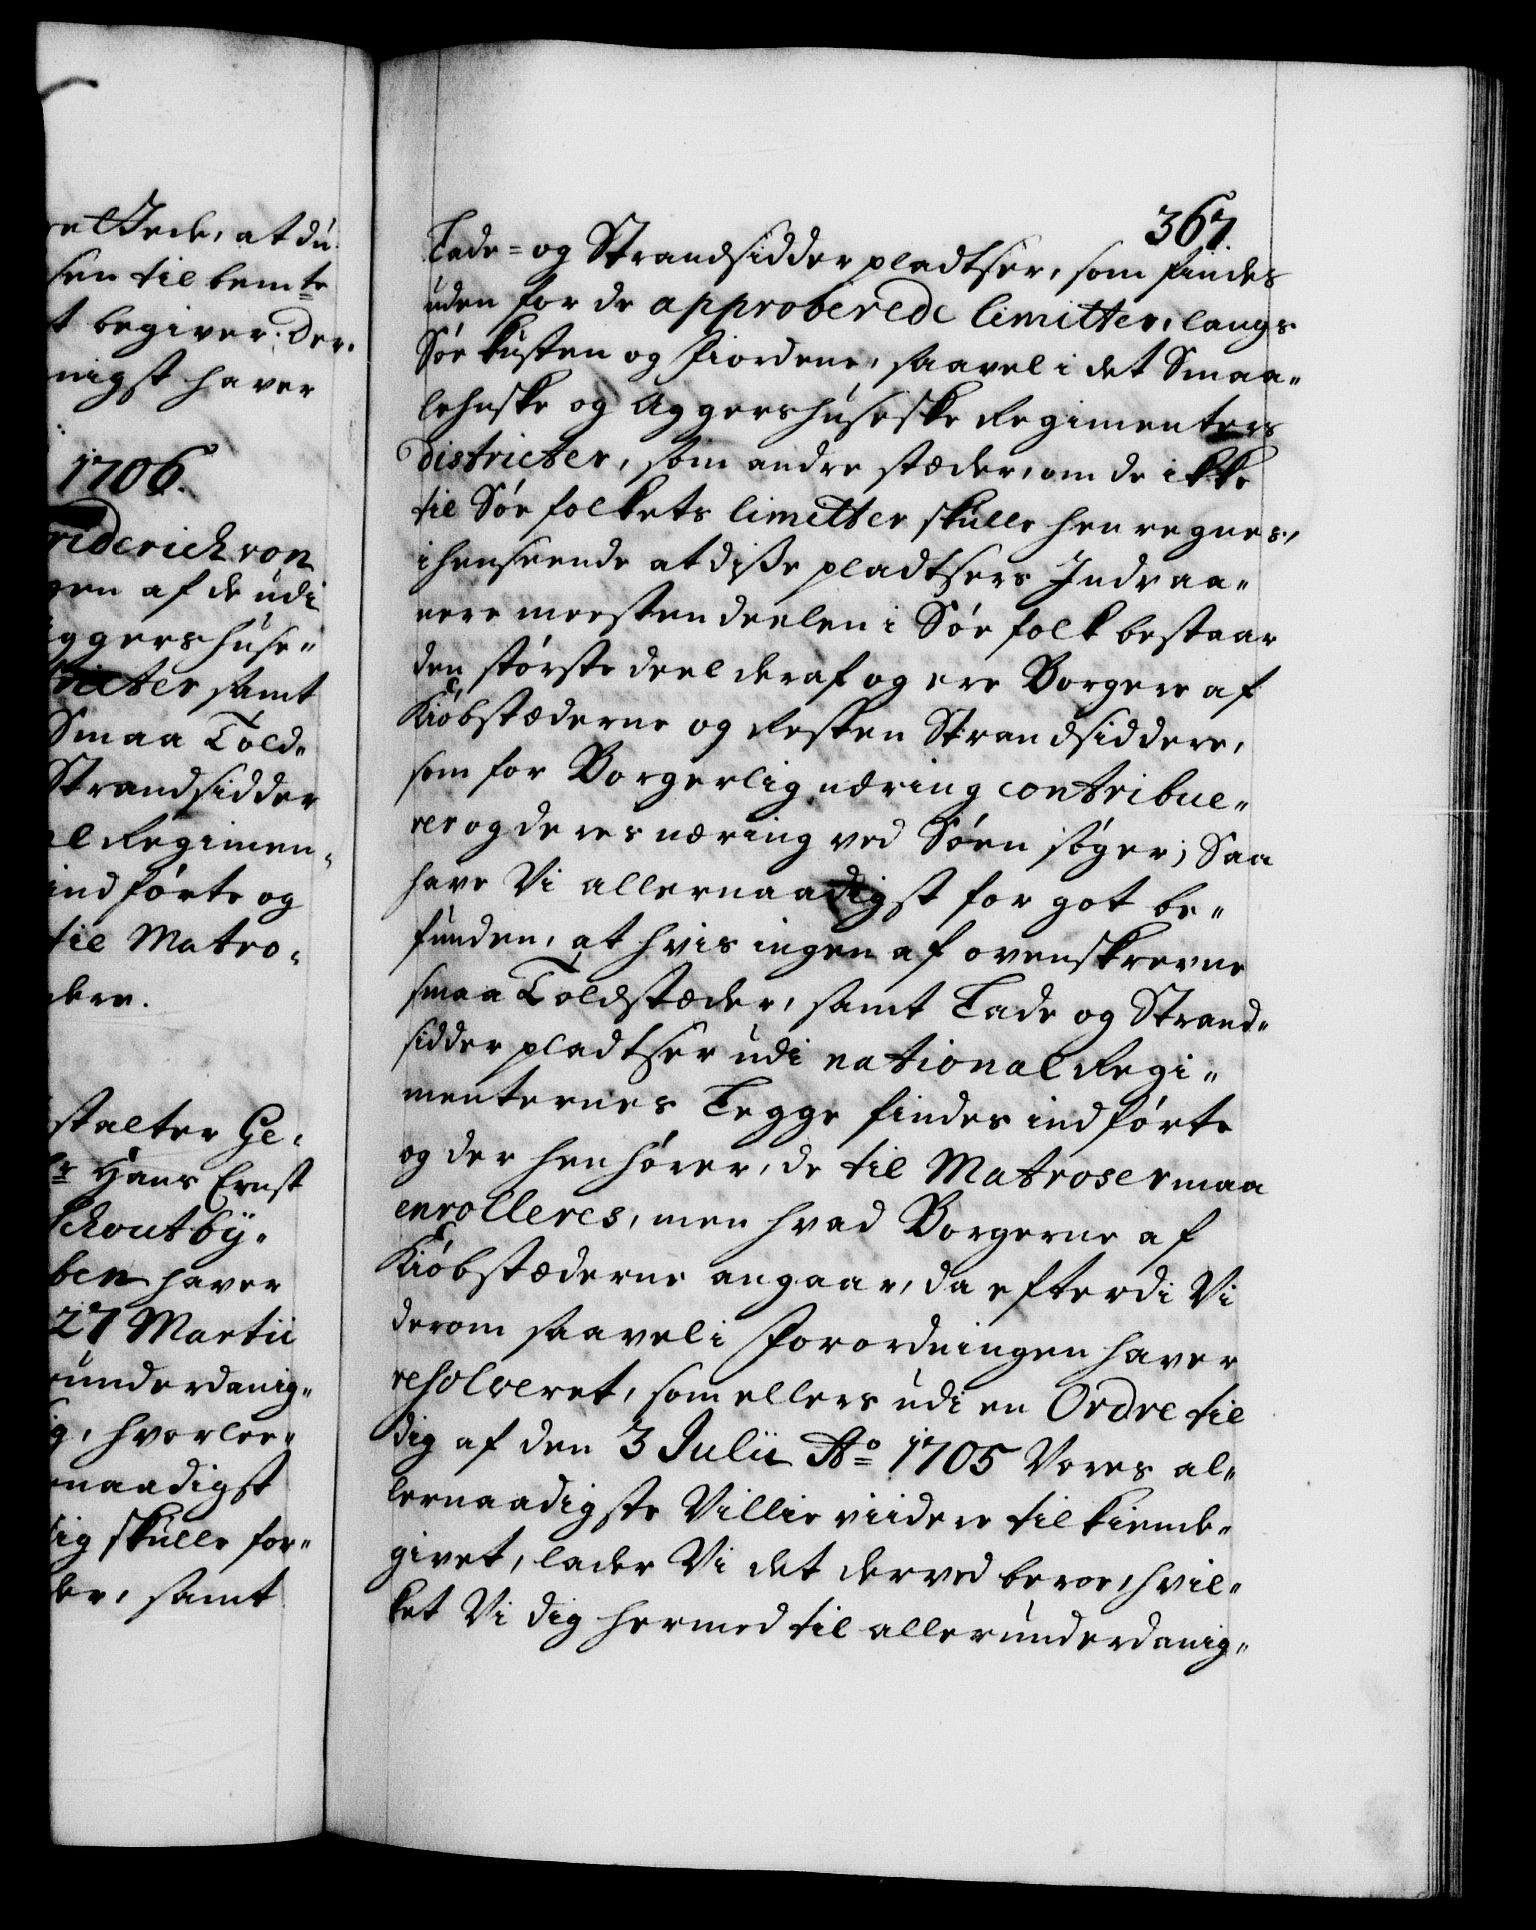 relTede, at du
sen til bemte
t begiver. Der,
nigst haver
1706.
riderich von
gen af de udi
ggershuse-
tricter samt
Smaa Told-
Strandsidder
el Regimen-
indförte og
til Matro-
dere.
stalter Ge-
Hr Hans Ernst
Schoutby-
ben haver
27 Martii
underdanig-
g, hvorlee-
naadigst
ig skulle for-
der, samt
367.
Lade- og Strandsidder pladtser, som findes
uden for de approberede limitter, langs
Söe kusten og Fiordene, saavel i det Smaa-
lehnske og Aggershuseske Regimenters
districter, som andre stæder, om de ikke
til Söefolkets limitter skulle henregnes,
i henseende at disse pladtsers Indvaa-
nere meestendeelen i Söefolk bestaar
den störste deel deraf og ere Borgere af
Kiöbstæderne og Resten Strandsiddere,
som for Borgerlig næring contribue-
rer og deres næring ved Söen söger; Saa
have Vi allernaadigst for got be-
funden, at hvis ingen af ovenskrevne
smaa Toldstæder, samt Lade og Strand-
sidder pladtser udi national Regi-
menternes Legge findes indförte
og der henhörer, de til Matroser maa
enrolleres, men hvad Borgerne af
Kiöbstæderne angaar, da efterdi Vi
derom saavel i Forordningen haver
resolveret, som ellers udi en Ordre til
dig af den 3 Julii Ao 1705 Vores al-
lernaadigste Villie viidere tilkiende-
givet, lader Vi det derved beroe, hvil-
ket Vi dig hermed til allerunderdanig-